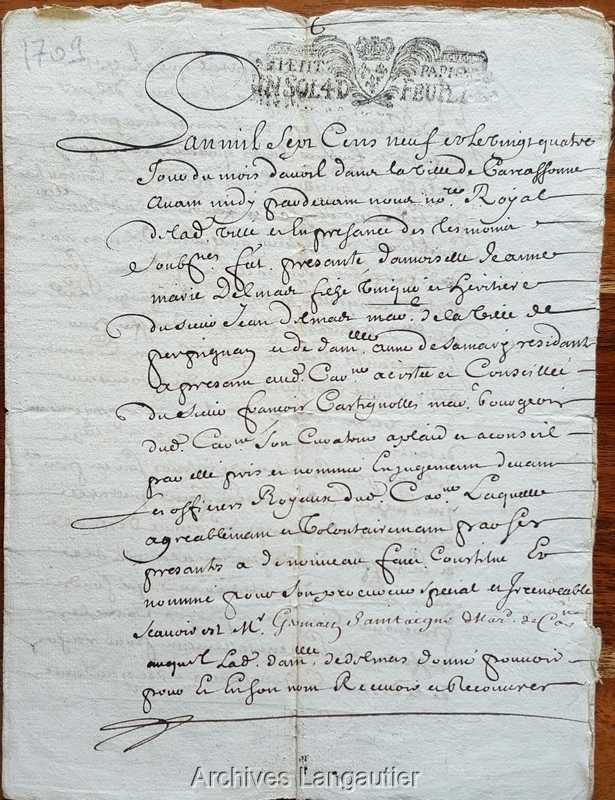 1709
PETIT PAPIER
UN SOL 4 D FEUILL
Lan mil Sept Cens neuf et le vingt quatre
Jour du mois davril dans la Ville de Carcassonne
Avant midy pardevant nous no.re Royal
de lad. Ville et en presance des tesmoins
Soubs.nes fut presante damoiselle Jeanne
marie Delmas filhe Unique et heritiere
du sieur Jean Delmas mar. de la Ville de
perpignan et de dam.elle Anne de residant
a presant aud. Car.ne acistee et Conseillée
du sieur francois Cartignolles mar. bourgeois
dud. Car.ne Son Curateur a plaid et a conseil
par elle pris et nommé En Jugement devant
Les officiers Royaux dud. Car.ne Laquelle
agreablemant et Volontairemant par Ses
presantes a de nouveau fait Constitué Et
nommé pour Son procureur spesial et Irrevocable
Scavoir est M.r Germain Mar. de Car.ne
auquel Lad. dam.elle de delmas donne pouvoir
pour Et En Son nom Recevoir et Recouvrer
Archives Langautier